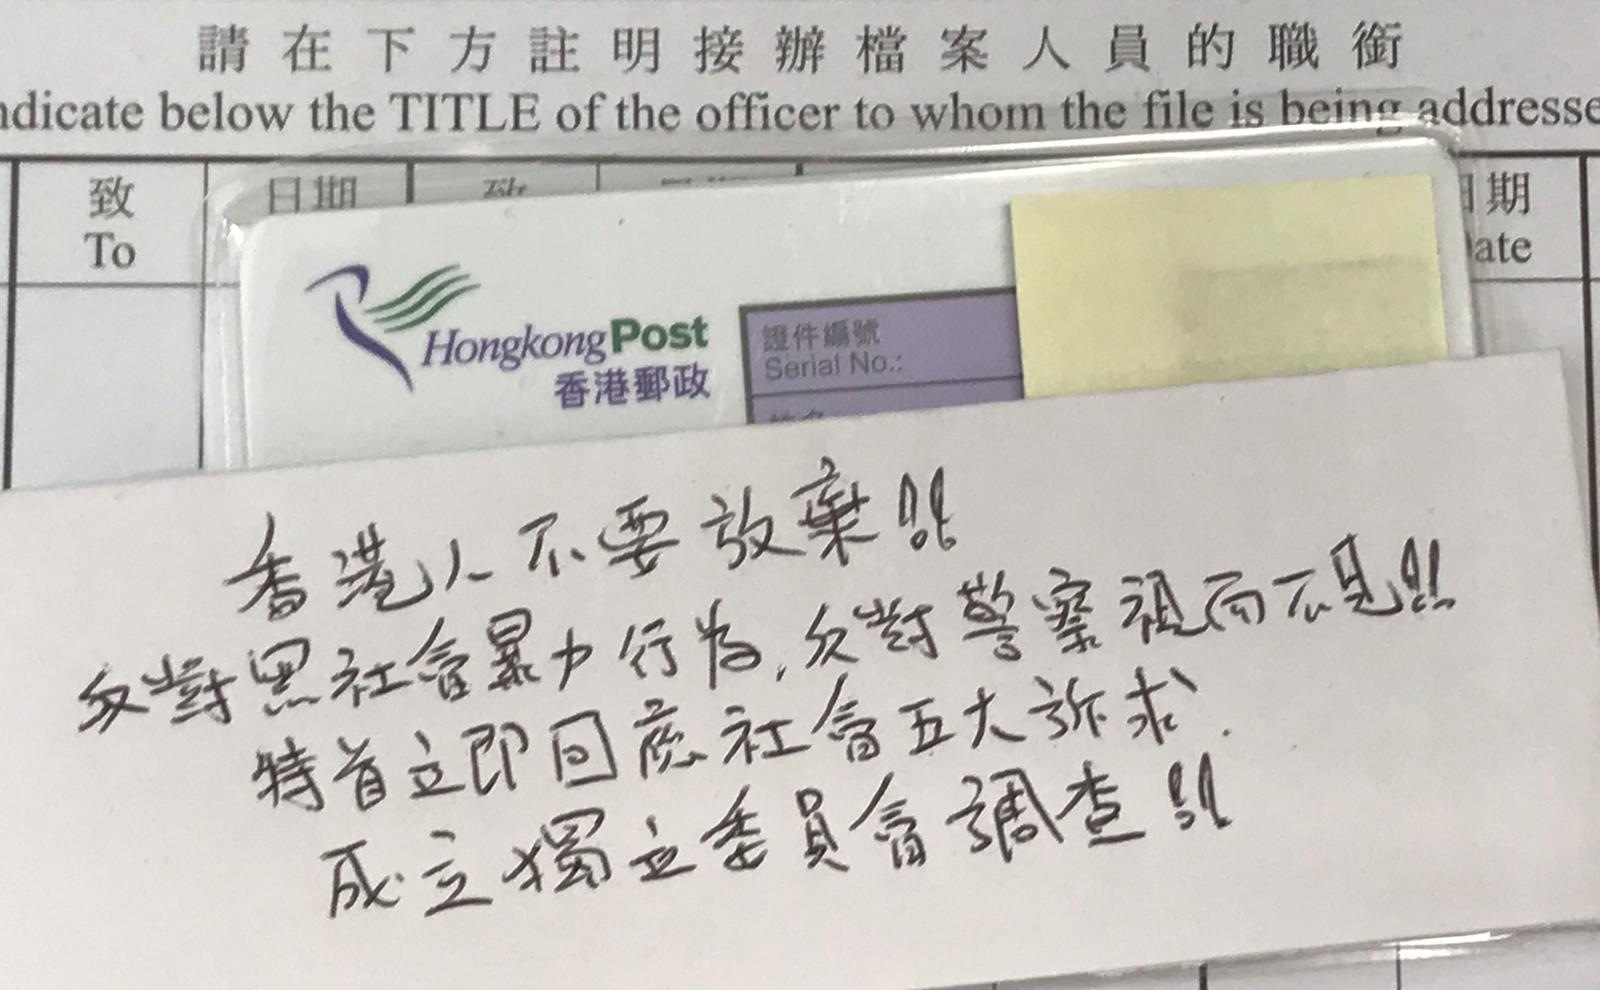 請在下方註明接辦檔案人員的職銜
ndicate below the TITLE of the officer to whom the file is being addresse
致 日期 期
To ate
HongkongPost
香港郵政
證件編號
Serial No.:
香港人不要放棄!!
反對黑社會暴力行為,反對警察視而不見!!
特首立即回應社會五大訴求.
成立獨立委員會調查!!